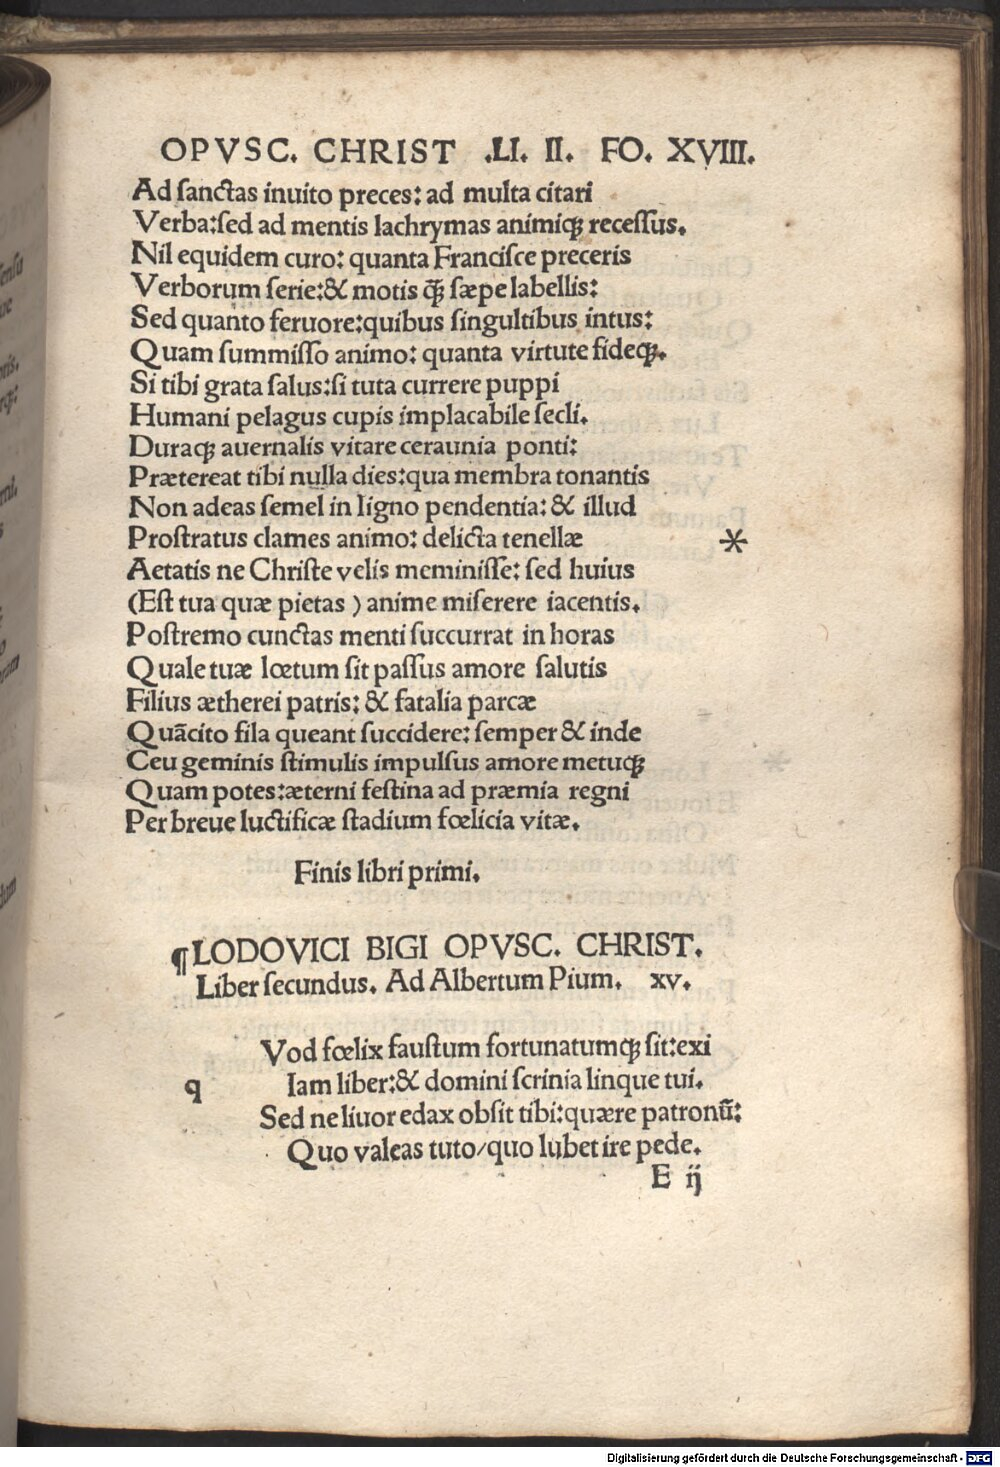 OPVSC. CHRIST .LI. II. FO. XVIII.
Ad ſanctas inuito preces: ad multa citari
Verba:ſed ad mentis lachrymas animiqꝫ receſſus.
Nil equidem curo: quanta Franciſce preceris
Verborum ſerie:& motis q̄ꝫ ſæpe labellis:
Sed quanto feruore:quibus ſingultibus intus:
Quam ſummiſſo animo: quanta virtute fideqꝫ.
Si tibi grata ſalus:ſi tuta currere puppi
Humani pelagus cupis implacabile ſecli.
Duraqꝫ auernalis vitare ceraunia ponti:
Prætereat tibi nulla dies:qua membra tonantis
Non adeas ſemel in ligno pendentia: & illud
Proſtratus clames animo: delicta tenellæ *
Aetatis ne Chriſte velis meminiſſe: ſed huius
(Eſt tua quæ pietas ) anime miſerere iacentis.
Poſtremo cunctas menti ſuccurrat in horas
Quale tuæ lœtum ſit paſſus amore ſalutis
Filius ætherei patris: & fatalia parcæ
Quācito fila queant ſuccidere: ſemper & inde
Ceu geminis ſtimulis impulſus amore metuqꝫ
Quam potes:æterni feſtina ad præmia regni
Per breue luctificæ ſtadium fœlicia vitæ.
Finis libri primi.
¶LODOVICI BIGI OPVSC. CHRIST.
Liber ſecundus. Ad Albertum Pium. xv.
Vod fœlix fauſtum fortunatumqꝫ ſit:exi
q Iam liber:& domini ſcrinia linque tui.
Sed ne liuor edax obſit tibi:quære patronū:
Quo valeas tuto/quo lubet ire pede.
E ij
Digitalisierung gefördert durch die Deutsche Forschungsgemeinschaft - DFG